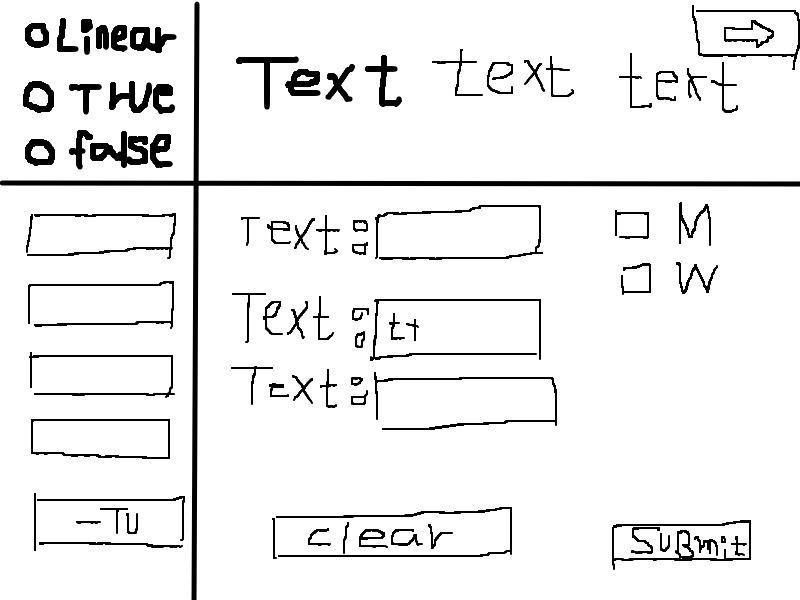 Linear
True
false
Text text text
Text:
Text: tt
Text:
M
W
-TU
clear
SUBmit